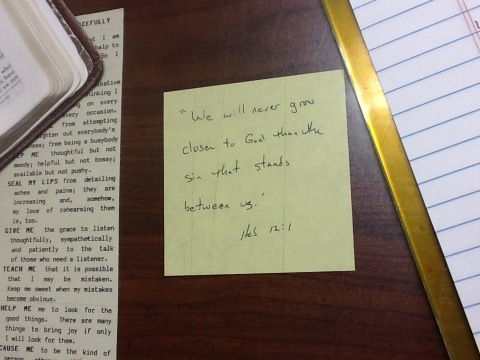 CEFULLY
I am
help to
So I
kative
thinking I
ng on every
very occasion.
from attempting
ghten out everybody's
ness; from being a busybody
P ME thoughtful but not
moody; helpful but not bossy;
available but not pushy.
SEAL MY LIPS from detailing
aches and pains; they are
increasing and, somehow,
my love of rehearsing them
is, too.
GIVE ME the grace to listen
thoughtfully, sympathetically
and patiently to the talk
of those who need a listener.
TEACH ME that it is possible
that I may be mistaken.
Keep me sweet when my mistakes
become obvious.
HELP ME to look for the
good things. There are many
things to bring joy if only
I will look for them.
CAUSE ME to be the kind of
"We will never grow
closer to God than the
sin that stands
between us."
Heb 12:1